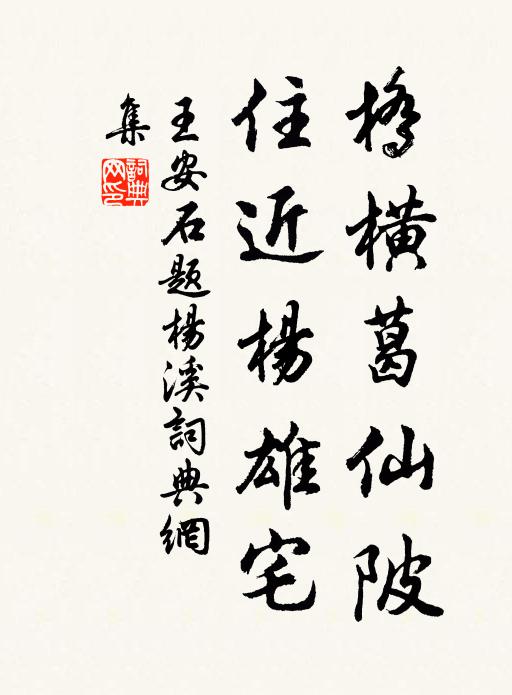 橋橫葛仙陂
住近楊雄宅
王安石题楊溪詞典網
集
詞典網印